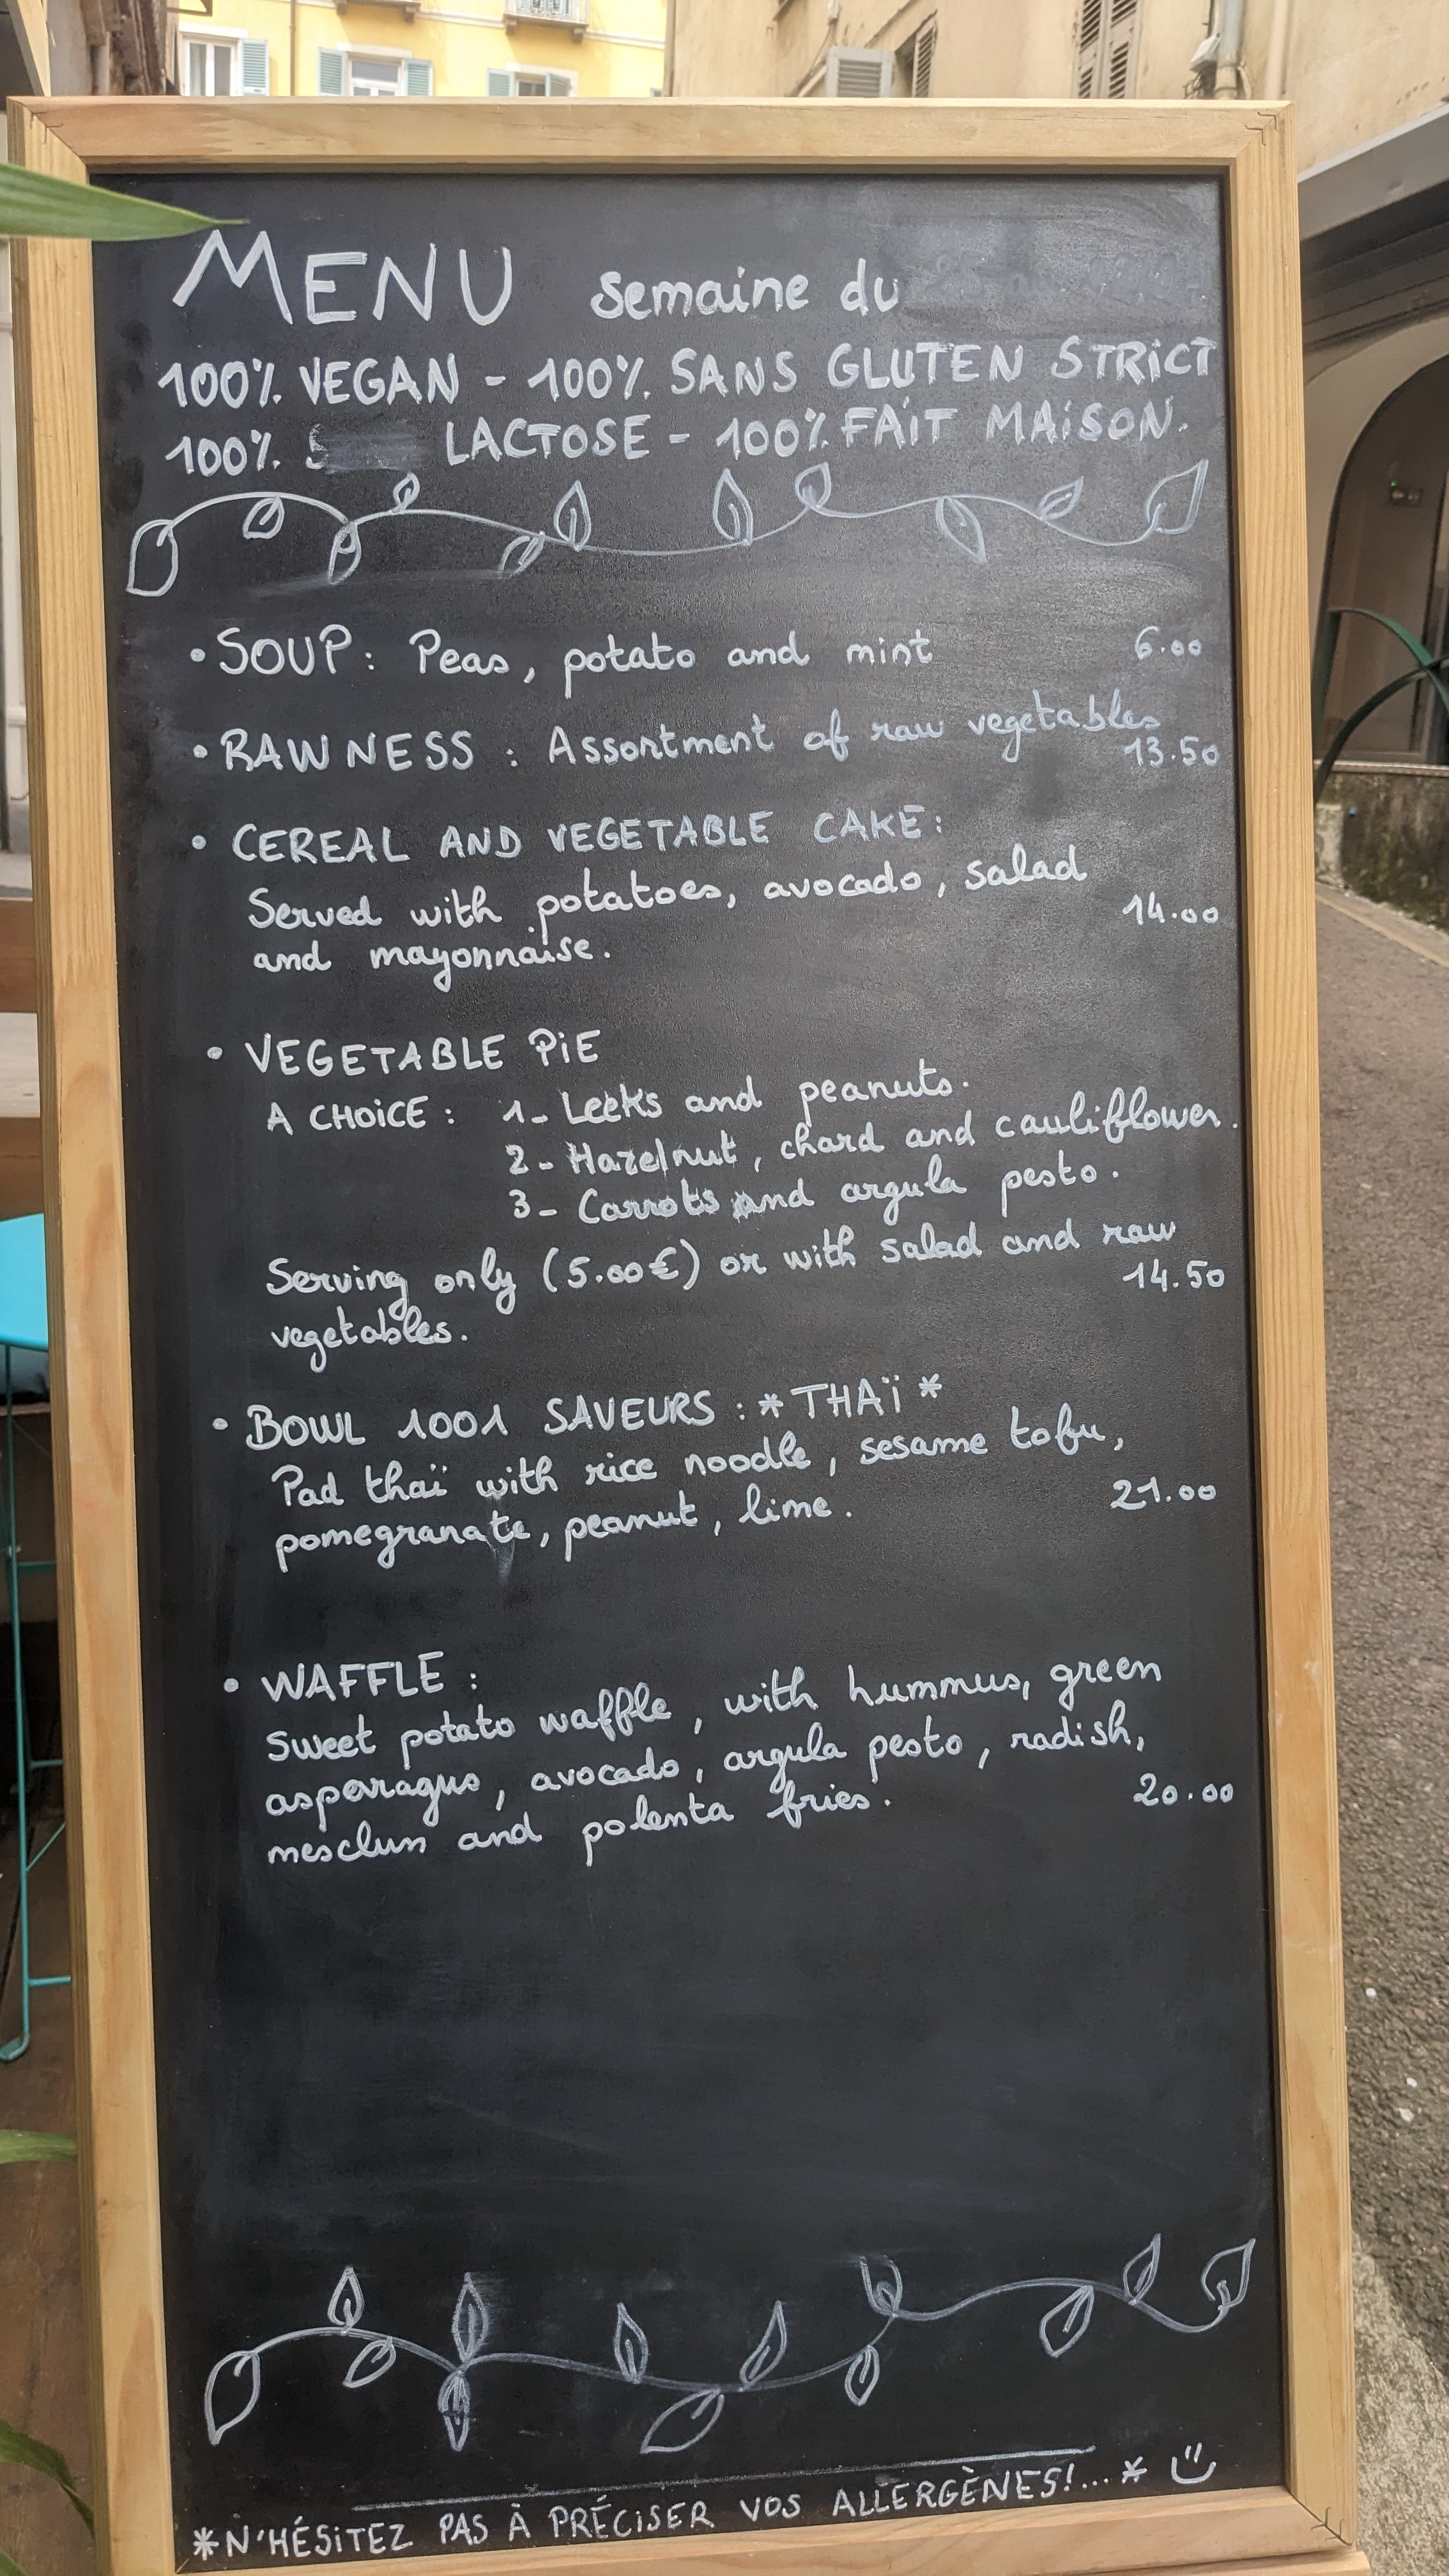 MENU semaine du
100% VEGAN - 100% SANS GLUTEN STRICT
100% LACTOSE - 100% FAIT MAISON.
• SOUP: Peas, potato and mint 6.00
• RAWNESS : Assortment of raw vegetables
13.50
• CEREAL AND VEGETABLE CAKE:
Served with potatoes, avocado, salad
14.00
and mayonnaise.
• VEGETABLE PiE
A CHOiCE : 1- Leeks and peanuts.
2- Hazelnut, chard and cauliflower.
3- Carrots and argula pesto.
Serving only (5.00€) or with salad and raw
14.50
vegetables.
• BOWL 1001 SAVEURS : *THAÏ*
Pad thaï with rice noodle, sesame tofu,
pomegranate, peanut, lime. 21.00
• WAFFLE :
Sweet potato waffle, with hummus, green
asparagus, avocado, argula pesto, radish,
mesclun and polenta fries. 20.00
*N'HÉSiTEZ PAS À PRÉCiSER VOS ALLERGÈNES!...*